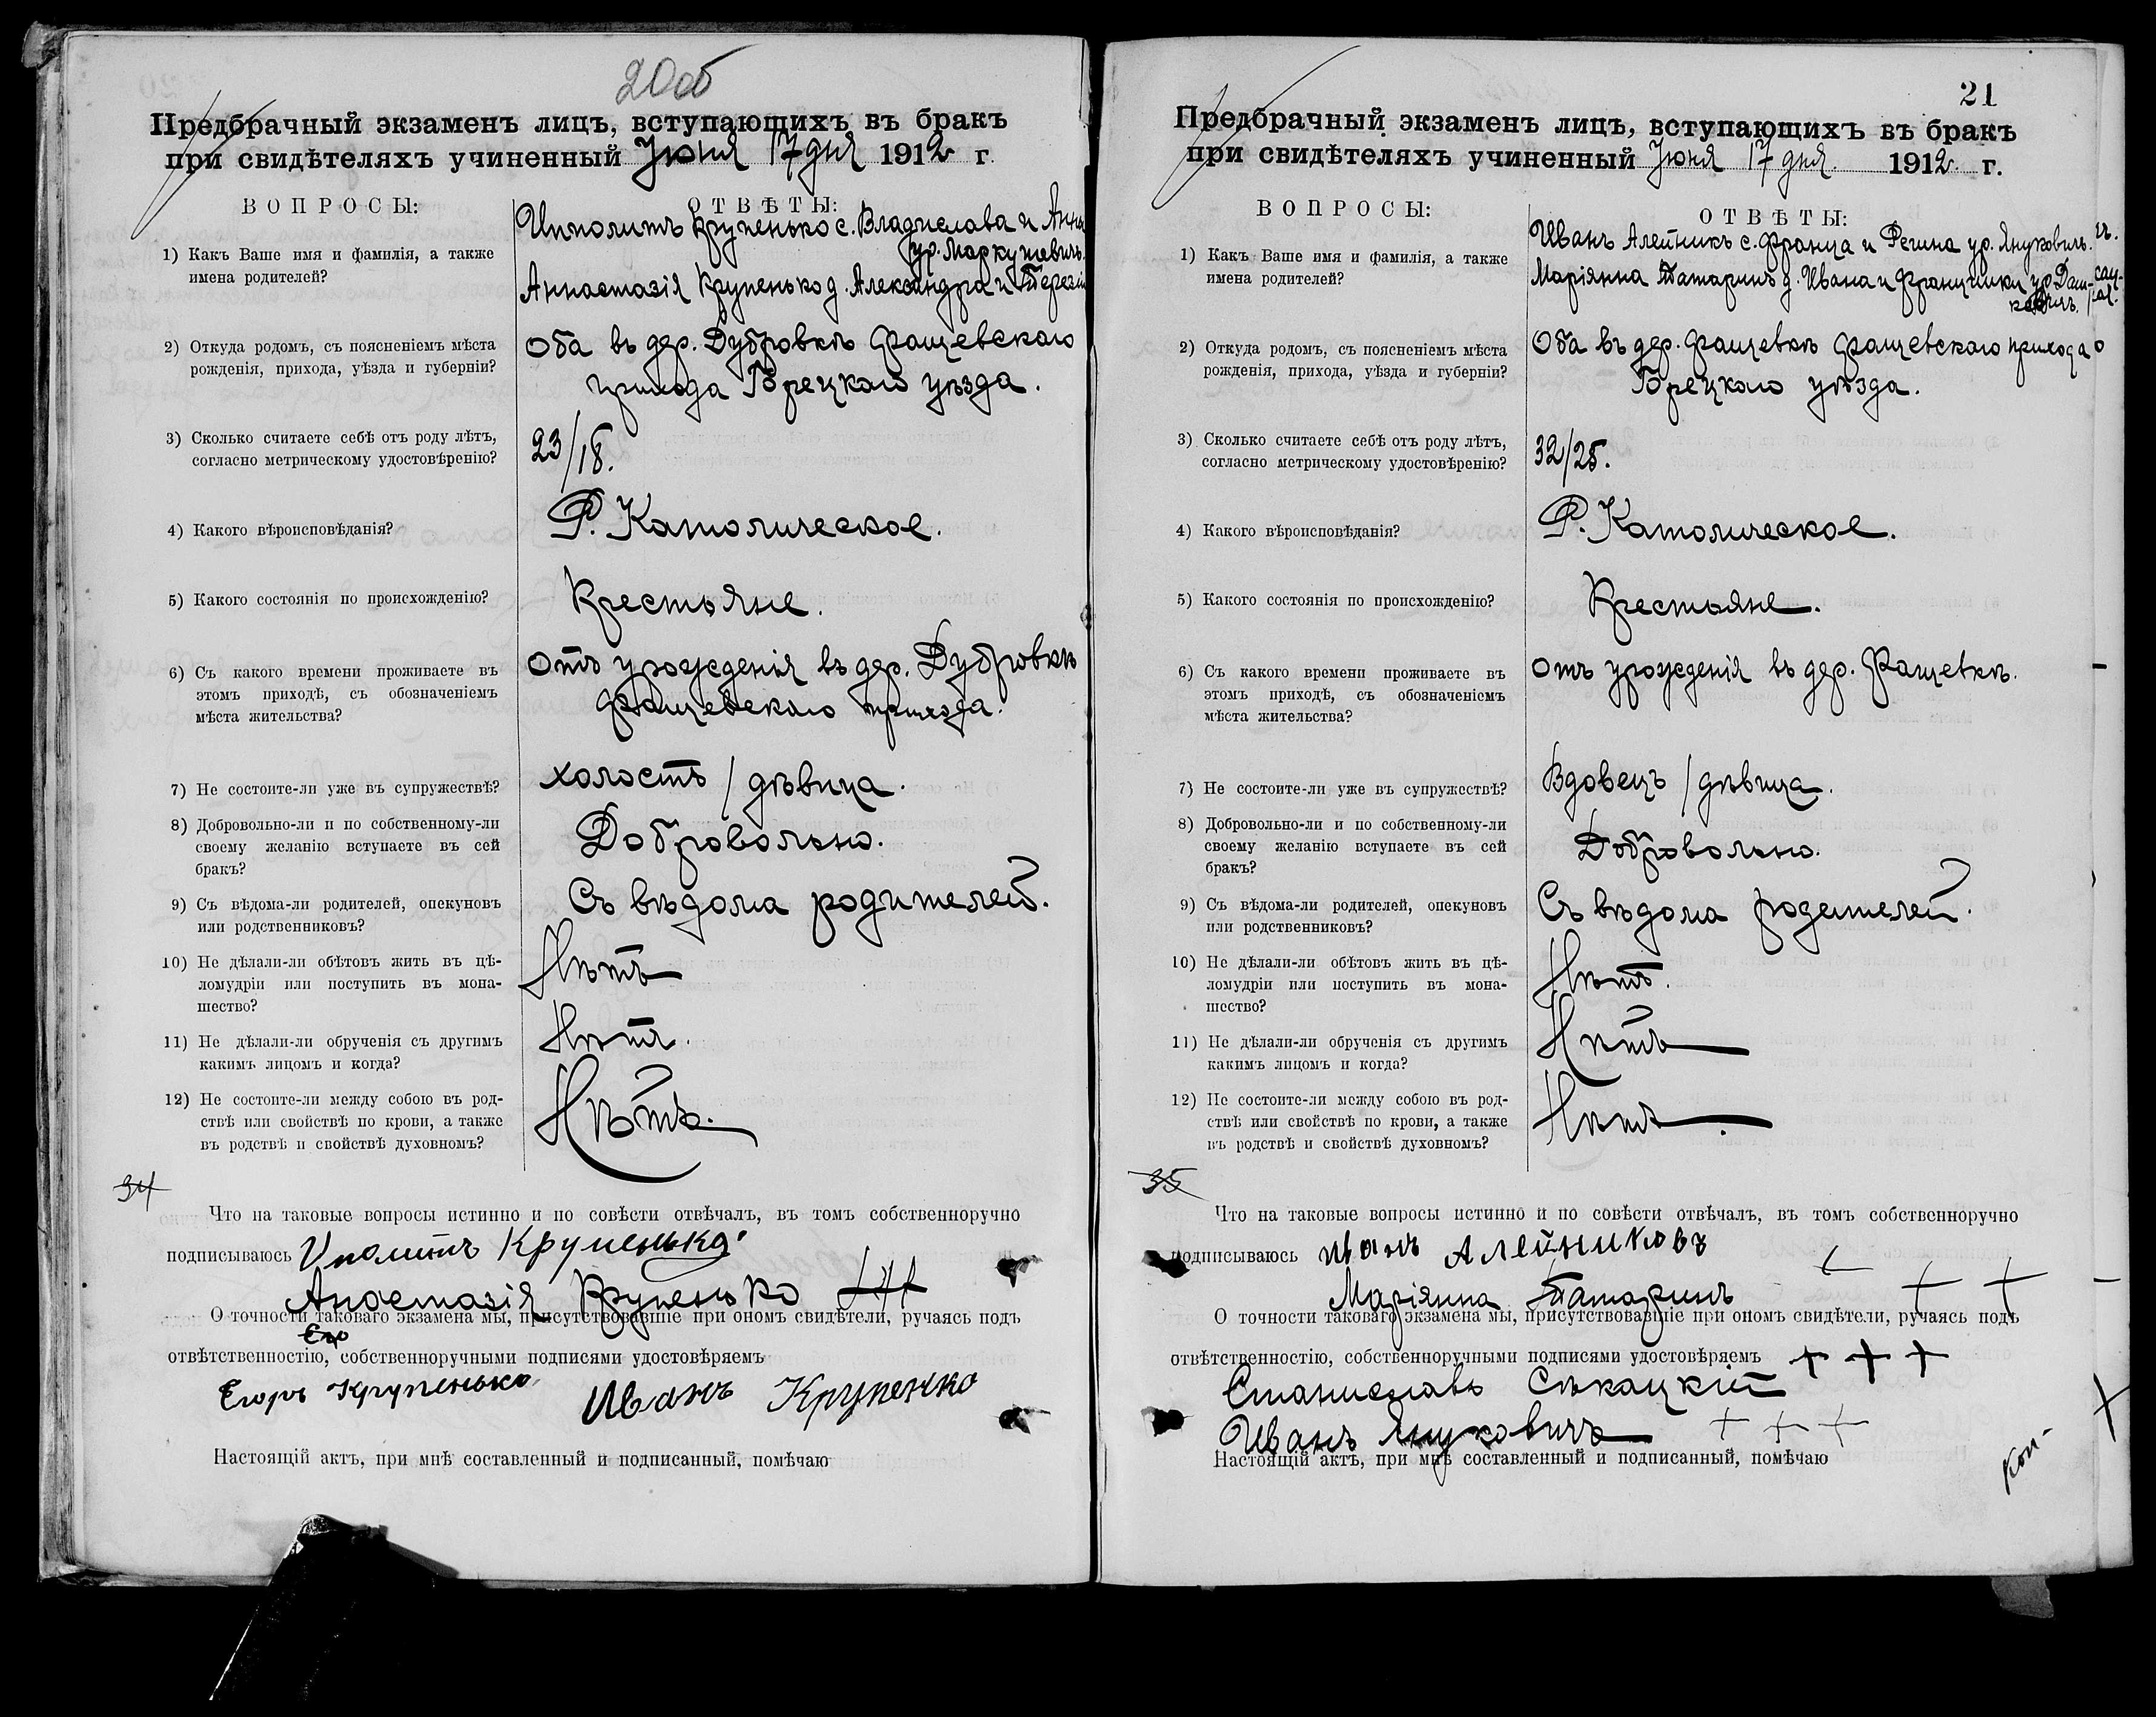 20об
Предбрачный экзаменъ лицъ, вступающихъ въ бракъ
при свидѣтеляхъ учиненный Июня 17 дня 1912 г.
ВОПРОСЫ:
ОТВѢТЫ:
1) Какъ Ваше имя и фамилія, а также
имена родителей?
Ипполитъ Крупенько с. Владислава и Анна
ур. Маркушевичъ.
Аннастазія Крупенько д. Александра и Терезіи
2) Откуда родомъ, съ поясненіемъ мѣста
рожденія, прихода, уѣзда и губерніи?
Оба въ дер. Дубровкѣ Фащевскаго
прихода Горецкаго уѣзда.
3) Сколько считаете себѣ отъ роду лѣтъ,
согласно метрическому удостовѣренію?
23/18.
4) Какого вѣроисповѣданія?
Р. Католическое.
5) Какого состоянія по происхожденію?
Крестьяне.
6) Съ какого времени проживаете въ
этомъ приходѣ, съ обозначеніемъ
мѣста жительства?
Отъ урожденія въ дер. Дубровкѣ
Фащевскаго прихода.
7) Не состоите-ли уже въ супружествѣ?
холостъ / дѣвица.
8) Добровольно-ли и по собственному-ли
своему желанію вступаете въ сей
бракъ?
Добровольно.
9) Съ вѣдома-ли родителей, опекуновъ
или родственниковъ?
Съ вѣдома родителей.
10) Не дѣлали-ли обѣтовъ жить въ цѣ-
ломудріи или поступить въ мона-
шество?
Нѣтъ
11) Не дѣлали-ли обрученія съ другимъ
какимъ лицомъ и когда?
Нѣтъ.
12) Не состоите-ли между собою въ род-
ствѣ или свойствѣ по крови, а также
въ родствѣ и свойствѣ духовномъ?
Нѣтъ.
34
Что на таковые вопросы истинно и по совѣсти отвѣчалъ, въ томъ собственноручно
подписываюсь Иполитъ Крупенько
Анастазія Крупенько +++
О точности таковаго экзамена мы, присутствовавшіе при ономъ свидѣтели, ручаясь подъ
отвѣтственностію, собственноручными подписями удостовѣряемъ
Егоръ Крупенько Иванъ Крупенко
Настоящій актъ, при мнѣ составленный и подписанный, помѣчаю
21
Предбрачный экзаменъ лицъ, вступающихъ въ бракъ
при свидѣтеляхъ учиненный Июня 17 дня 1912 г.
ВОПРОСЫ:
ОТВѢТЫ:
1) Какъ Ваше имя и фамилія, а также
имена родителей?
Иванъ Алейникъ с. Франца и Регина ур. Януковичъ.
Маріянна Татаринъ д. Ивана и Францишки ур. Даш-
кевичъ.
2) Откуда родомъ, съ поясненіемъ мѣста
рожденія, прихода, уѣзда и губерніи?
Оба въ дер. Фащевкѣ Фащевскаго прихода
Горецкаго уѣзда.
3) Сколько считаете себѣ отъ роду лѣтъ,
согласно метрическому удостовѣренію?
32/25.
4) Какого вѣроисповѣданія?
Р. Католическое.
5) Какого состоянія по происхожденію?
Крестьяне.
6) Съ какого времени проживаете въ
этомъ приходѣ, съ обозначеніемъ
мѣста жительства?
Отъ урожденія въ дер. Фащевкѣ.
7) Не состоите-ли уже въ супружествѣ?
Вдовецъ / дѣвица.
8) Добровольно-ли и по собственному-ли
своему желанію вступаете въ сей
бракъ?
Добровольно.
9) Съ вѣдома-ли родителей, опекуновъ
или родственниковъ?
Съ вѣдома родителей.
10) Не дѣлали-ли обѣтовъ жить въ цѣ-
ломудріи или поступить въ мона-
шество?
Нѣтъ.
11) Не дѣлали-ли обрученія съ другимъ
какимъ лицомъ и когда?
Нѣтъ
12) Не состоите-ли между собою въ род-
ствѣ или свойствѣ по крови, а также
въ родствѣ и свойствѣ духовномъ?
Нѣтъ
35
Что на таковые вопросы истинно и по совѣсти отвѣчалъ, въ томъ собственноручно
подписываюсь Иванъ Алейниковъ
Маріянна Татаринъ + + +
О точности таковаго экзамена мы, присутствовавшіе при ономъ свидѣтели, ручаясь подъ
отвѣтственностію, собственноручными подписями удостовѣряемъ + + +
Станиславъ Сѣкацкій
Иванъ Януковичъ + + +
Настоящій актъ, при мнѣ составленный и подписанный, помѣчаю